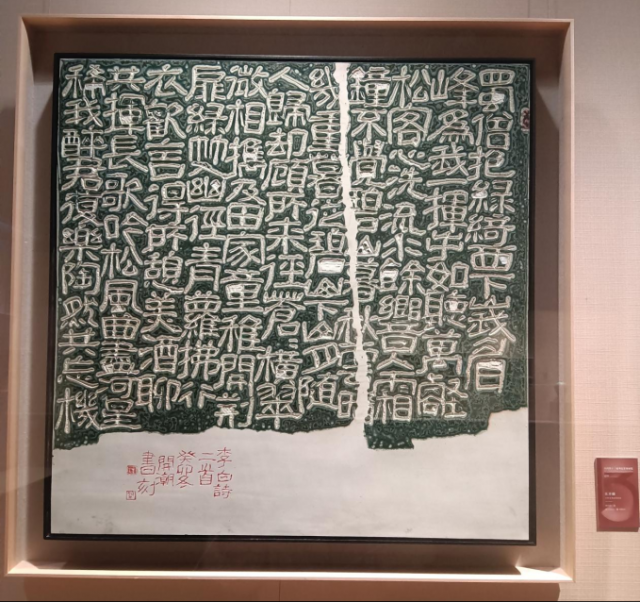 蜀僧抱綠綺西下峨眉
峰為我一揮手如聽萬壑
松客心洗流水餘響入霜
鐘不覺碧山暮秋雲暗
幾重暮從碧山下山月隨
人歸却顧所來徑蒼〻橫翠
微相攜及田家童稚開荊
扉綠竹入幽徑青蘿拂行
衣歡言得所憩美酒聊
共揮長歌吟松風曲盡河星
稀我醉君復樂陶然共忘機
李白詩
二首
癸卯冬
書刻